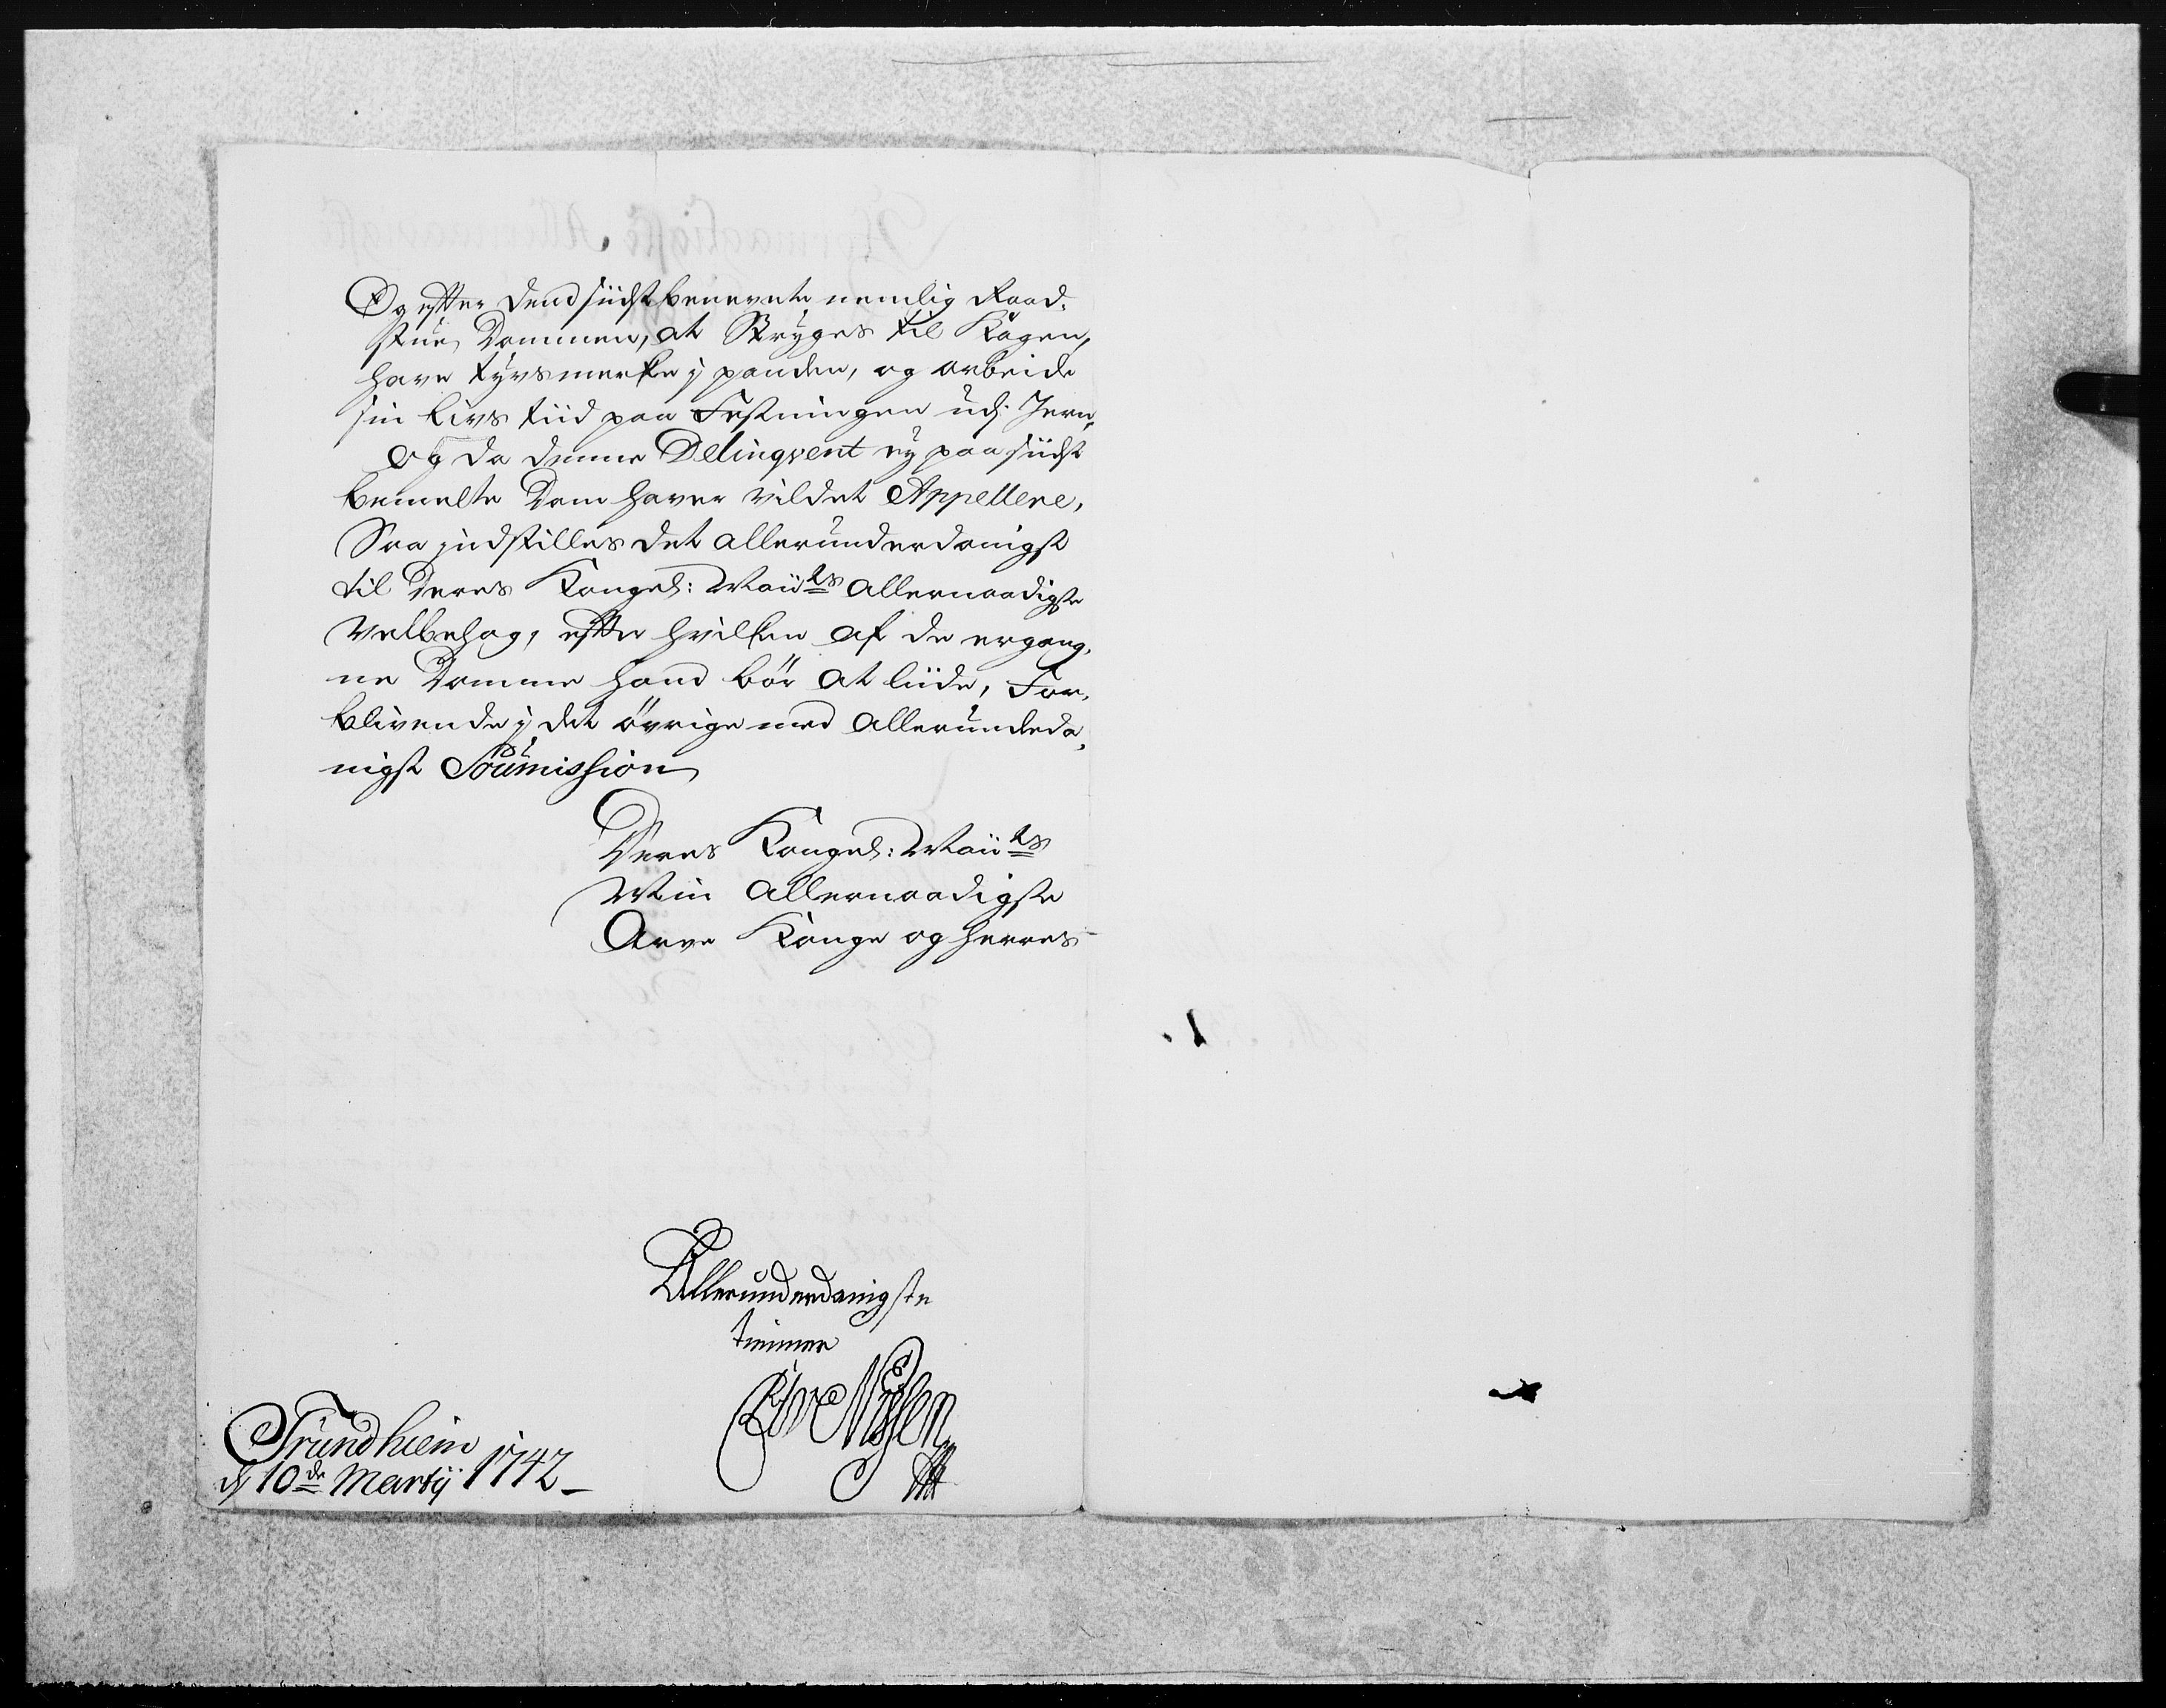 Og efter dend siidstbenevnte nemlig Raad-
stue Dommen, at Stryges til Kagen,
have tyvsmerke j panden, og arbeide
sin livs tiid paa Festningen udj Jern,
Og da denne Delinqvent ej paa siidst
bemelte Dom haver vildet Appellere,
Saa jndstilles det allerunderdanigst
til Deres Kongel: Maiits allernaadigste
Velbehag, efter hvilken af de ergang-
ne Domme hand bör at liide, For-
blivende j det övrige med allerundeda-
nigst Soumission
Deres Kongel: Maiits
Min Allernaadigste
Arve Konge og Herres
Allerunderdanigste
tienner
Nissen
Trundhiem
d 10de Martij 1742